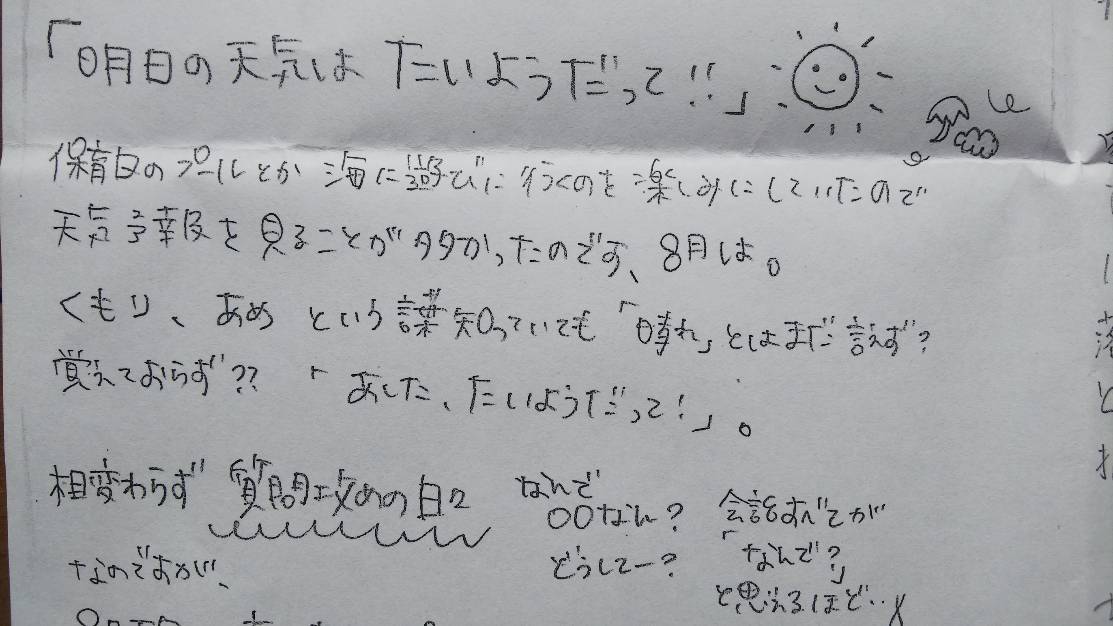 「明日の天気は たいようだって!!」
保育白のプールとか 海に遊びに行くのを楽しみにしていたので
天気予報を見ることが多かったのです、8月は。
くもり、あめ という言葉知っていても 「晴れ」とはまだ言えず?
覚えておらず?? 「あした、たいようだって!」。
相変わらず 質問攻めの日々
なのですが、
なんで
〇〇なん?
どうしてー?
会話すべてが
「なんで?」
と思えるほど‥